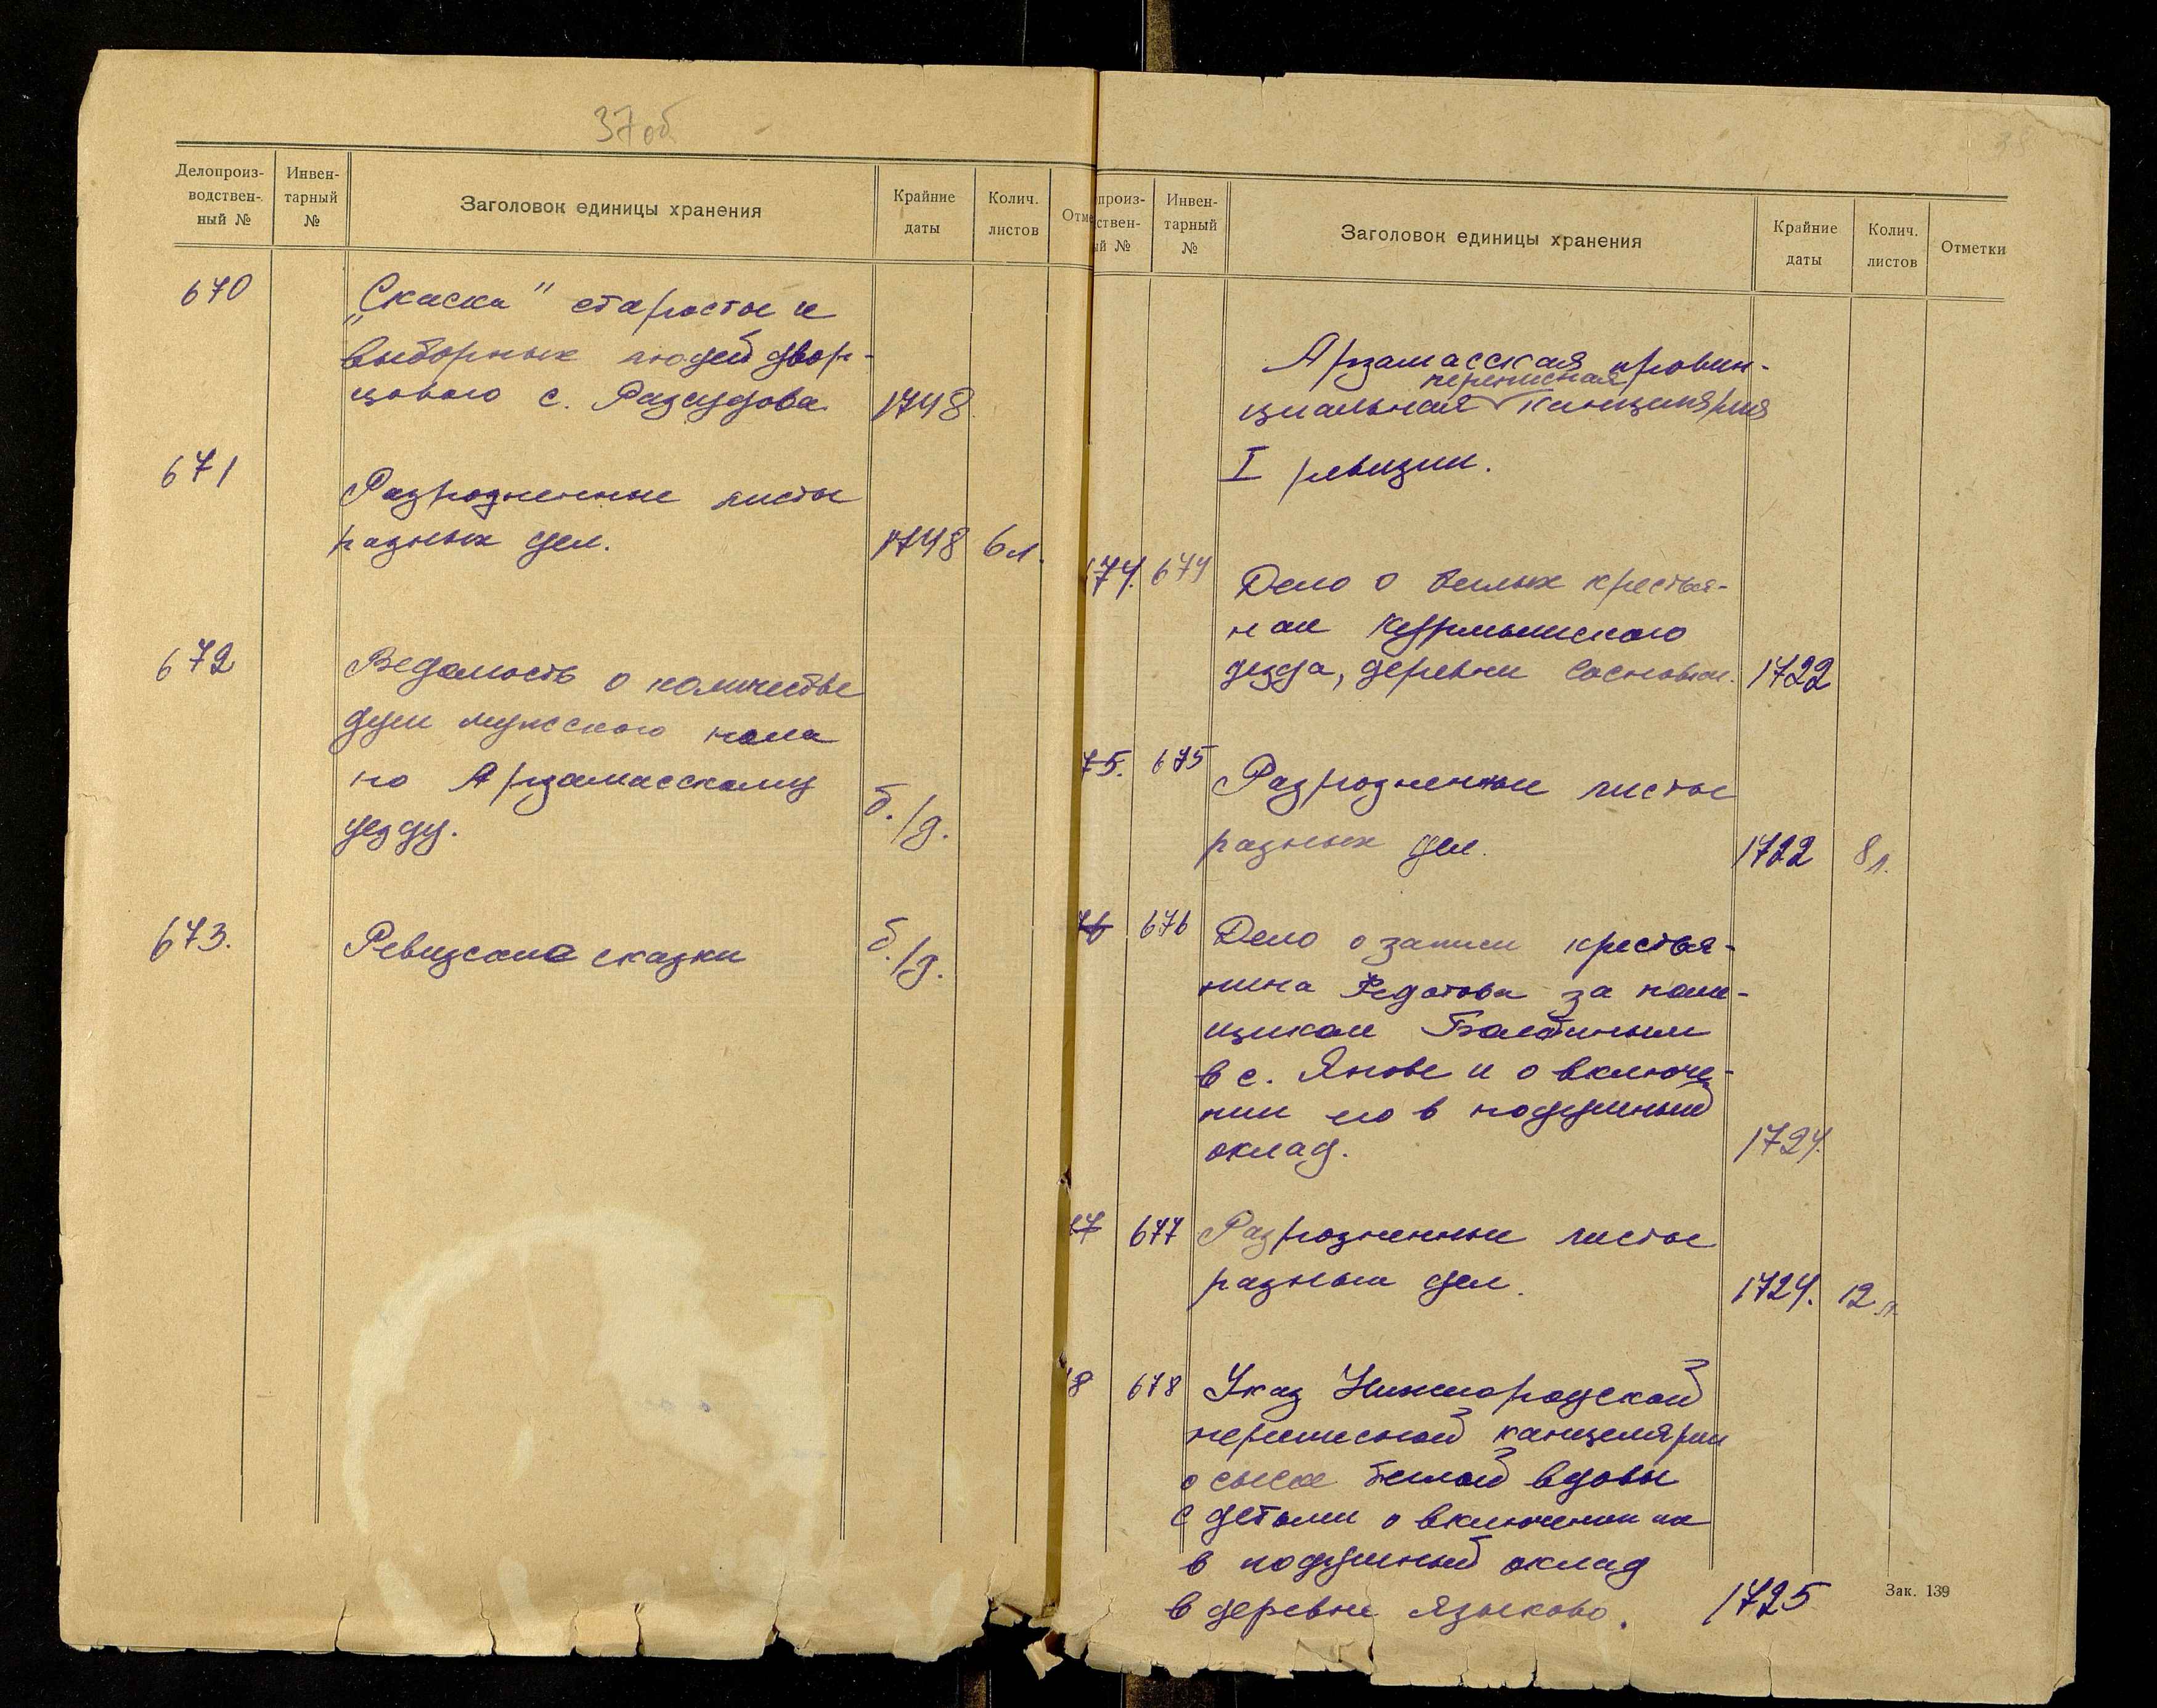 37об
Делопроиз-
водствен-
ный №
Инвен-
тарный
№
Заголовок единицы хранения
Крайние
даты
Колич.
листов
Отме
670
„Скаска" старосты и
выборных людей двор-
цового с. Разсудова
1748
671
Разрозненные листы
разных дел.
1748 6 л.
672
Ведомость о количестве
душ мужского пола
по Арзамасскому
уезду.
б./д.
673.
Ревизские сказки
б./д.
38
произ-
ствен-
ый №
Инвен-
тарный
№
Заголовок единицы хранения
Крайние
даты
Колич.
листов
Отметки
Арзамасская провин-
переписная
циальная канцелярия
I ревизии.
74. 674
Дело о беглых крестья-
нах Курмышского
уезда, деревни Сосновки.
1722
75. 675
Разрозненные листы
разных дел.
1722 8 л.
76 676
Дело о записи крестья-
нина Федотова за поме-
щиком Болтиным
в с. Янове и о включе-
нии его в подушный
оклад.
1724.
77 677
Разрозненные листы
разных дел.
1724. 12 л.
8 678
Указ Нижегородской
переписной канцелярии
о сыске беглой вдовы
с детьми о включении их
в подушный оклад
в деревне Языково.
1725
Зак. 139